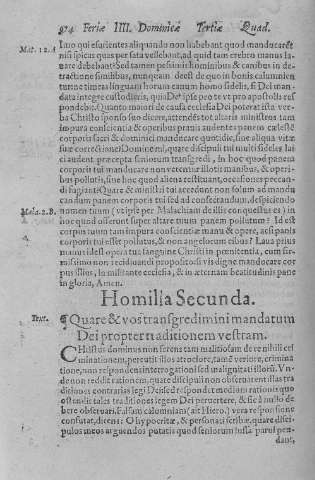 974 Feriæ IIII. Dominicæ Tertiæ Quad.
Mat. 12. A
Iuro qui esurientes aliquando non habebant quod manducarēt
nisi spicas quas per sata vellebant, ad quid tam crebro manus la-
uare debebant? Sed tamen pessimi hominibus & canibus in de-
tractione similibus, nunquam deest de quo in bonis calumnien
tur ne timeas linguam horum canum homo fidelis, si Dei man-
data integre custodieris, quia De⁹ ipse pro te vt pro apostolis res
pondebit. Quanto maiori de causa ecclesia Dei poterat ista ver-
ba Christo sponso suo dicere, attendēs tot altaris ministros tam
impura conscientia & operibus prauis audentes panem cælestē
corporis sacri & dominici manducare quotidie, sine aliqua vitæ
suæ correctione: Domine mi, quare discipuli tui multi fideles lai
ci audent præcepta seniorum transgredi, in hoc quod panem
corporis tui manducare non verentur illotis manibus, & operi-
bus pollutis, sine hoc quod aliena restituant, occasiones pec can-
di fugiant? Quare & ministri tui accedunt non solum ad mandu
candum panem corporis tui sed ad consecrandum, despiciendo
Mala. 2. B.
nomen tuum (vti ipse per Malachiam de illis conquestus es) in
hoc quod offerunt super altare tuum panem pollutum? Id est
corpus tuum tam impura conscientiæ manu & opere, acsi panis
corporis tui esset pollutus, & non angelorum cibus? Laua prius
manus id est opera tua sanguine Christi in pœnitentia, cum fir-
missimo non recidiuandi proposito, si vis digne manducare cor
pus illius, in militante ecclesia, & in æternam beatitudinis pane
in gloria, Amen.
Homilia Secunda.
Text.
¶ Quare & vos transgredimini mandatum
Dei propter traditionem vestram.
CHristus dominus non ferens tam malitiosam de re nihili cri
minationem, percutit illos atrociore, tamē veriore, crimina
tione, non respondens interrogationi sed malignitati illorū. Vn-
de non reddit rationem, quare discipuli non obseruarent illas tra
ditiones contrarias legi Dei: sed respondet de mediorem ratione quo
ostendit tales traditiones legem Dei peruertere, & sic à nullo de-
bere obseruari. Falsam calumniam (ait Hiero.) vera responsione
confutat, dicens: O hypocritæ, & personati scribæ, quare discipu
los meos arguendos putatis quod seniorum iussa parui pen-
dant,